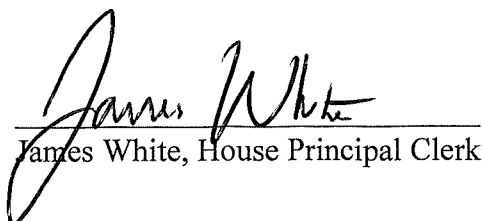 James White
James White, House Principal Clerk